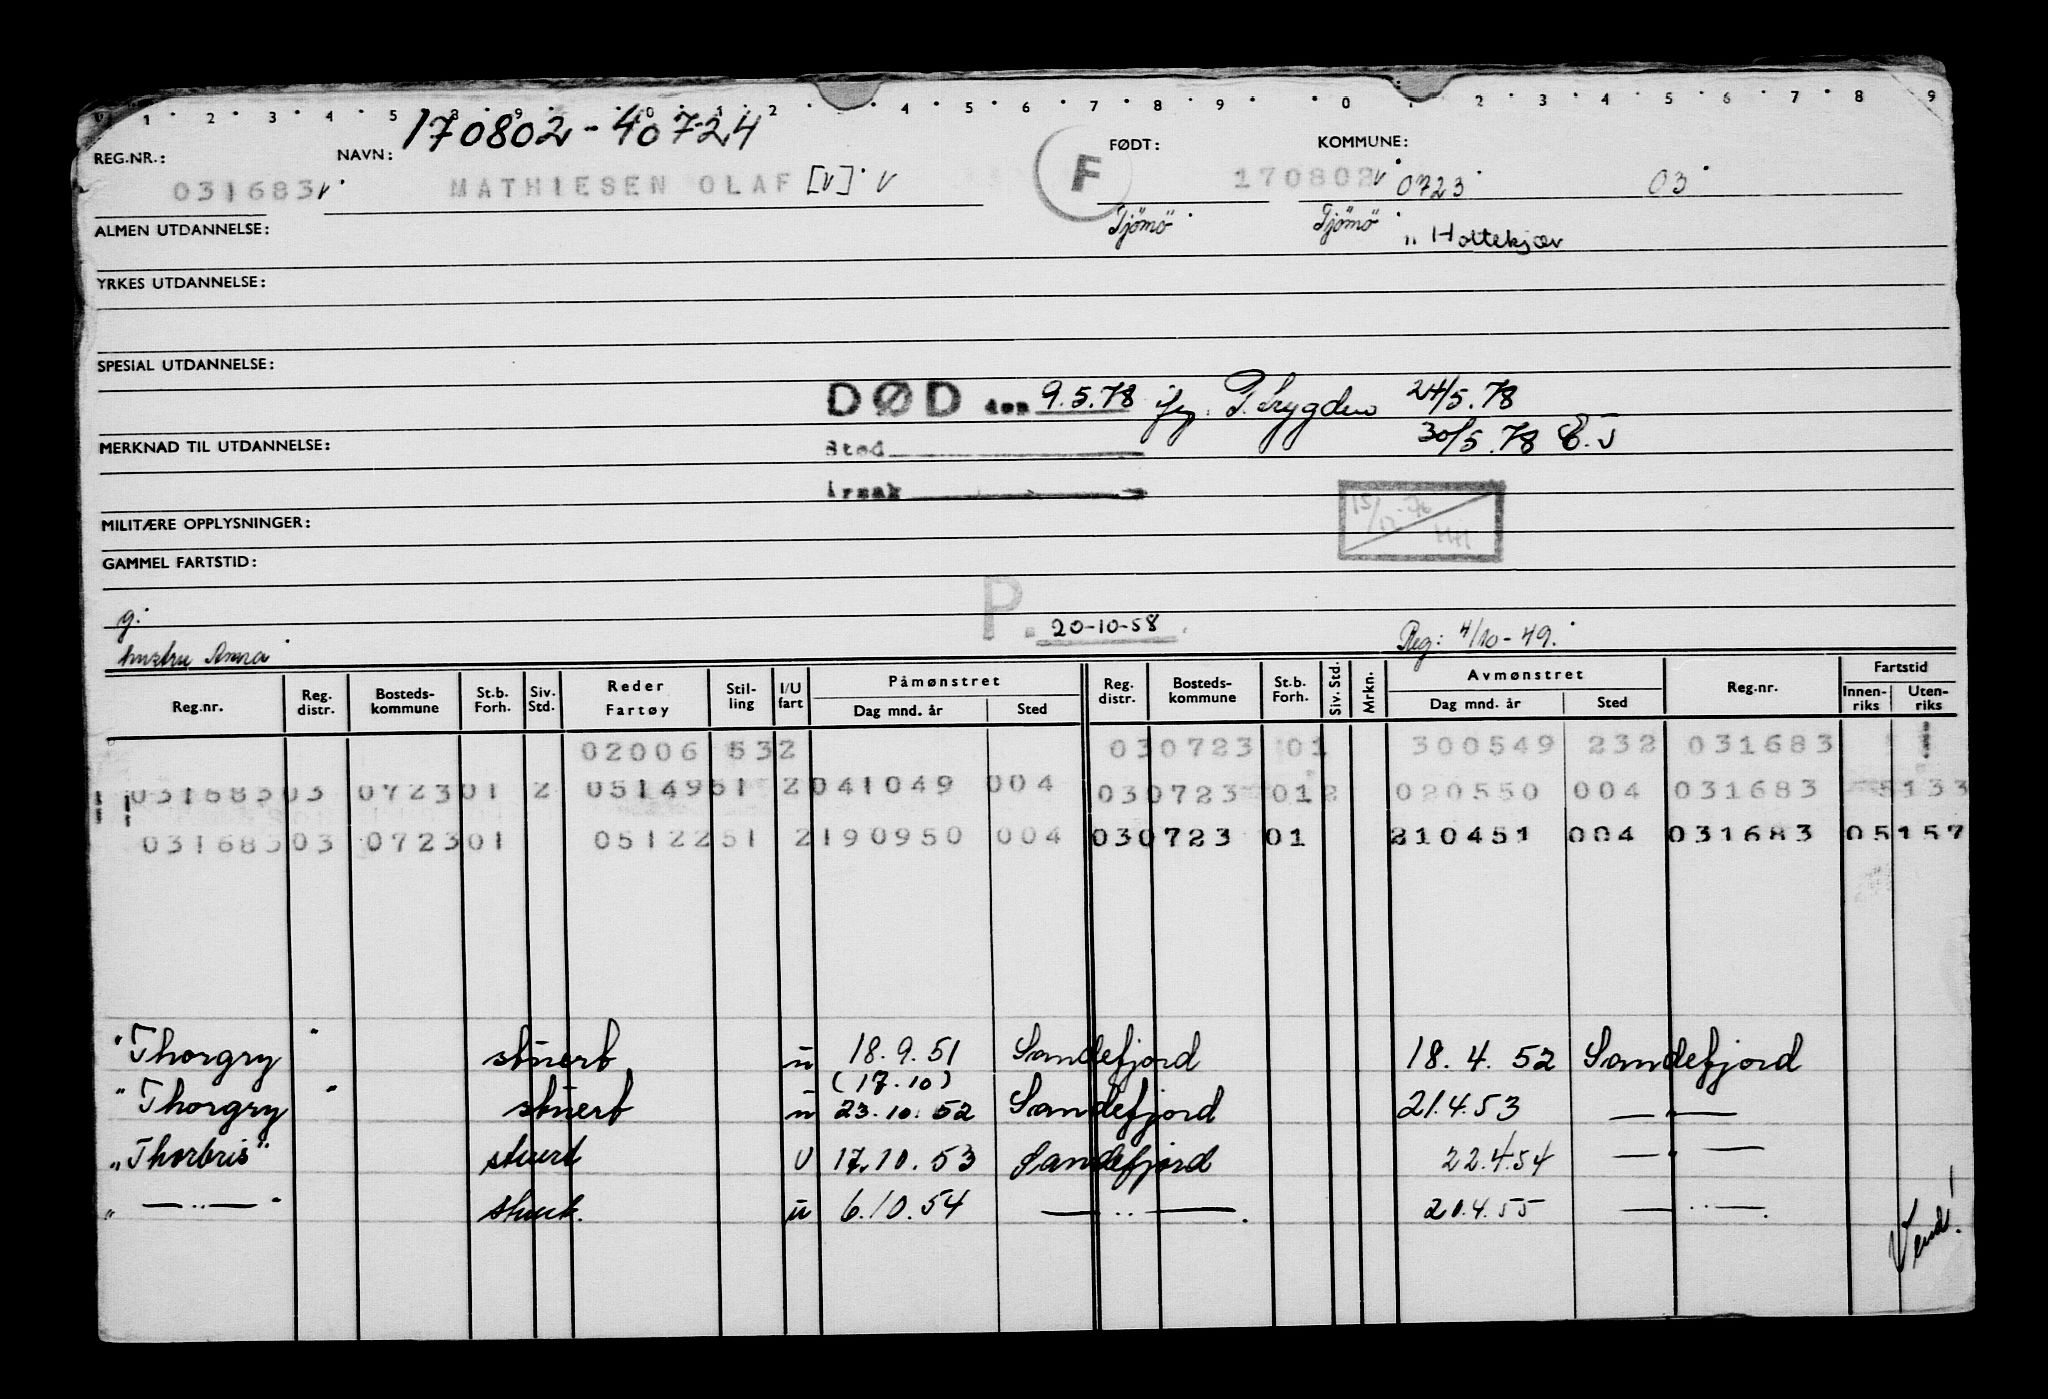 1 2 3 4 5 8 9 0 1 2 4 5 6 7 8 9 0 1 2 3 4 5 6 7 8 9
170802-40724
REG.NR.: NAVN: F FØDT: KOMMUNE:
031683 v MATHIESEN OLAF [v] v 170802 v 0723 03
ALMEN UTDANNELSE: Tjömö Tjömö
„ Holtekjær
YRKES UTDANNELSE:
SPESIAL UTDANNELSE:
DØD den 9.5.78 jfg. P. Trygden 24/5.78
MERKNAD TIL UTDANNELSE: Sted 30/5.78 E.T
Årsak 15/12-76 HH
MILITÆRE OPPLYSNINGER:
GAMMEL FARTSTID:
g: P. 20-10-58 Reg: 4/10-49.
hustru Anna
Reg.nr. Reg. distr. Bosteds- kommune St.b. Forh. Siv. Std. Reder Fartøy Stil- ling I/U fart Påmønstret Dag mnd. år Sted Reg. distr. Bosteds- kommune St.b. Forh. Siv. Std. Mrkn. Avmønstret Dag mnd. år Sted Reg.nr. Fartstid Innen- riks Uten- riks
02006 532 030723 01 300549 232 031683
031683 03 0723 01 2 05149 51 2 041049 004 030723 01 2 020550 004 031683 5133
031683 03 0723 01 05122 51 2 190950 004 030723 01 210451 004 031683 05157
"Thorgry" stuert u 18.9.51 Sandefjord 18.4.52 Sandefjord
(17.10)
"Thorgry" stuert u 23.10.52 Sandefjord 21.4.53 — " —
„Thorbris" stuert U 17.10.53 Sandefjord 22.4.54 — " —
„ — .. — " stuert. u 6.10.54 — .. —. 20.4.55 — .. —.
Vend!